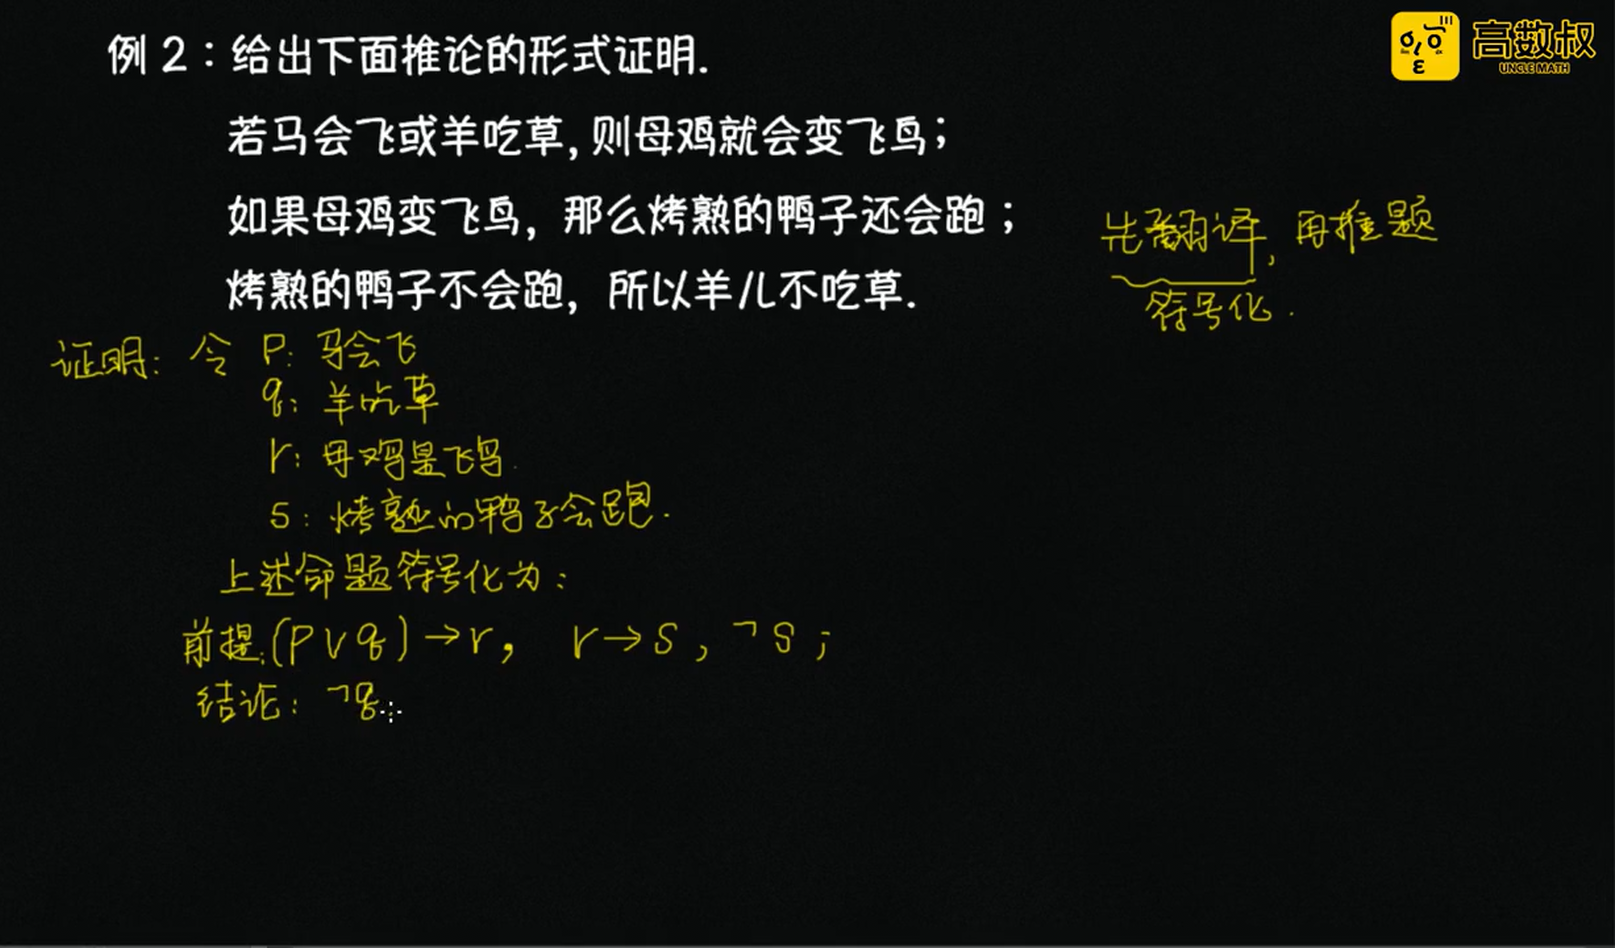 高数叔
UNCLE MATH
例 2：给出下面推论的形式证明.
若马会飞或羊吃草, 则母鸡就会变飞鸟；
如果母鸡变飞鸟，那么烤熟的鸭子还会跑；
烤熟的鸭子不会跑，所以羊儿不吃草.
先翻译, 再推题
符号化.
证明: 令 P: 马会飞
q: 羊吃草
r: 母鸡是飞鸟.
s: 烤熟的鸭子会跑.
上述命题符号化为:
前提:(P∨q)→r, r→s, ¬s;
结论: ¬q.